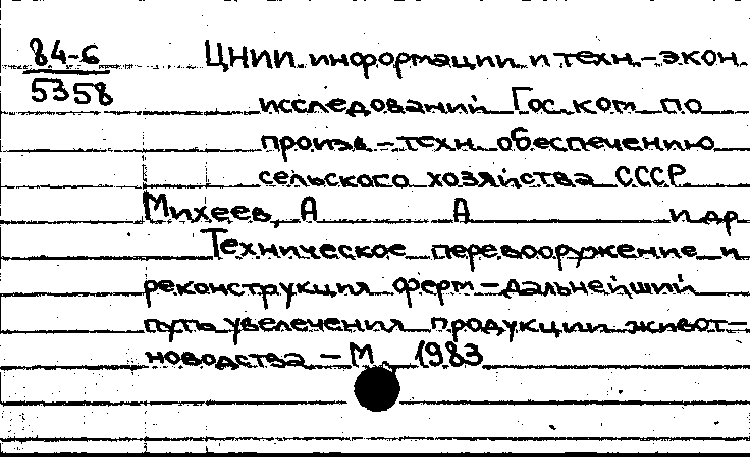 84-6
5358
ЦНИИ информации и техн.-экон.
исследований Гос. ком. по
произв.-техн. обеспечению
сельского хозяйства СССР
Михеев, А А и др
Техническое перевооружение и
реконструкция ферм – дальнейший
путь увеличения продукции живот-
новодства – М., 1983